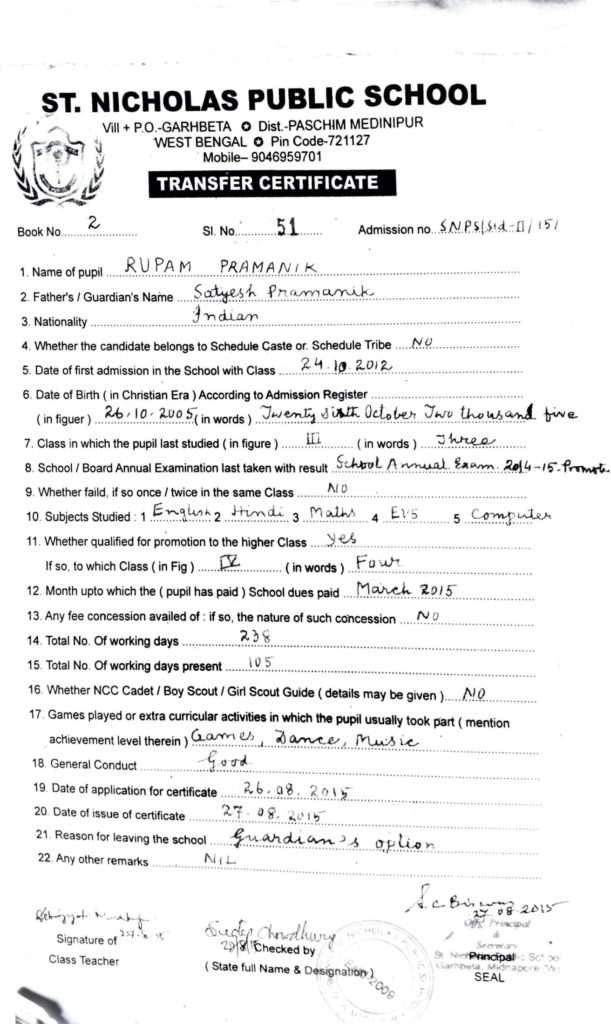 ST. NICHOLAS PUBLIC SCHOOL
Vill + P.O.-GARHBETA ✪ Dist.-PASCHIM MEDINIPUR
WEST BENGAL ✪ Pin Code-721127
Mobile– 9046959701
TRANSFER CERTIFICATE
Book No. 2 Sl. No. 51 Admission no. SNPS/Std-II/15/
1. Name of pupil RUPAM PRAMANIK
2. Father's / Guardian's Name Satyesh Pramanik
3. Nationality Indian
4. Whether the candidate belongs to Schedule Caste or. Schedule Tribe NO
5. Date of first admission in the School with Class 24.10.2012
6. Date of Birth ( in Christian Era ) According to Admission Register
(in figuer ) 26.10.2005 (in words ) Twenty Sixth October Two thousand five
7. Class in which the pupil last studied ( in figure ) III ( in words ) Three
8. School / Board Annual Examination last taken with result School Annual Exam. 2014-15-Promote
9. Whether faild, if so once / twice in the same Class NO
10. Subjects Studied : 1 English 2 Hindi 3 Maths 4 EVS 5 Computer
11. Whether qualified for promotion to the higher Class yes
If so, to which Class ( in Fig ) IV ( in words ) Four
12. Month upto which the ( pupil has paid ) School dues paid March 2015
13. Any fee concession availed of : if so, the nature of such concession NO
14. Total No. Of working days 238
15. Total No. Of working days present 105
16. Whether NCC Cadet / Boy Scout / Girl Scout Guide ( details may be given ) NO
17. Games played or extra curricular activities in which the pupil usually took part ( mention
achievement level therein ) Games, Dance, Music
18. General Conduct Good
19. Date of application for certificate 26.08.2015
20. Date of issue of certificate 27.08.2015
21. Reason for leaving the school Guardian's option
22. Any other remarks NIL
27.08.2015
Signature of 27.8.15
Class Teacher
Chowdhury
Checked by
( State full Name & Designation )
Principal
&
Principal
SEAL